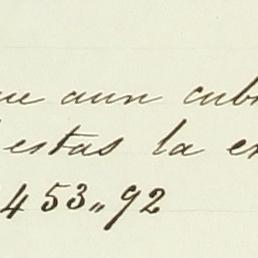 ue aun cub
estas la e
453,,92